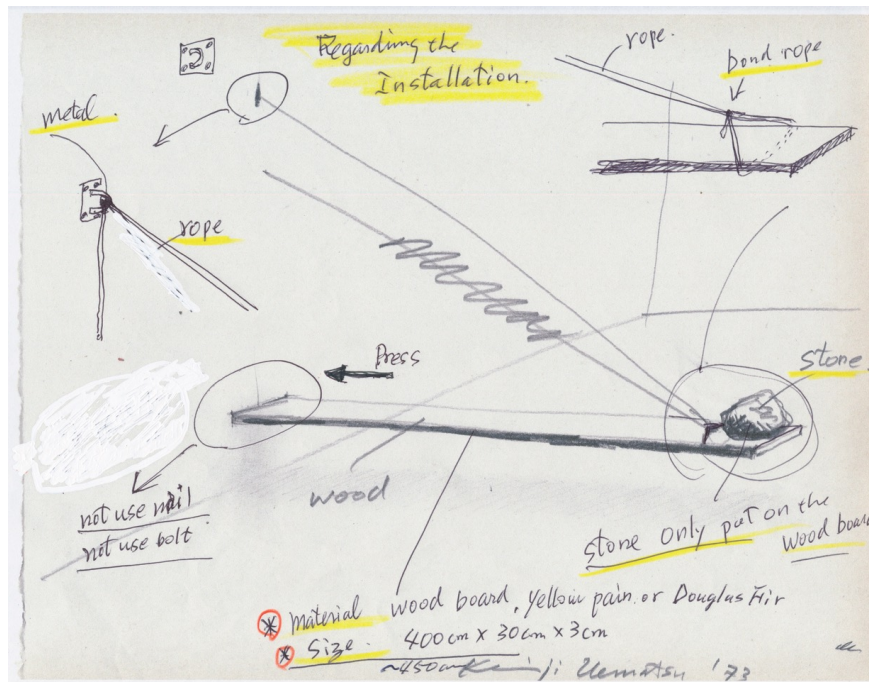 Regarding the
Installation.
rope.
bond rope
metal.
rope
Press
stone
wood
not use nail
not use bolt.
stone only put on the
wood board
* Material wood board, yellow pain. or Douglas Fir
* Size. 400cm x 30cm x 3cm
~450cm Kenji Uematsu '73